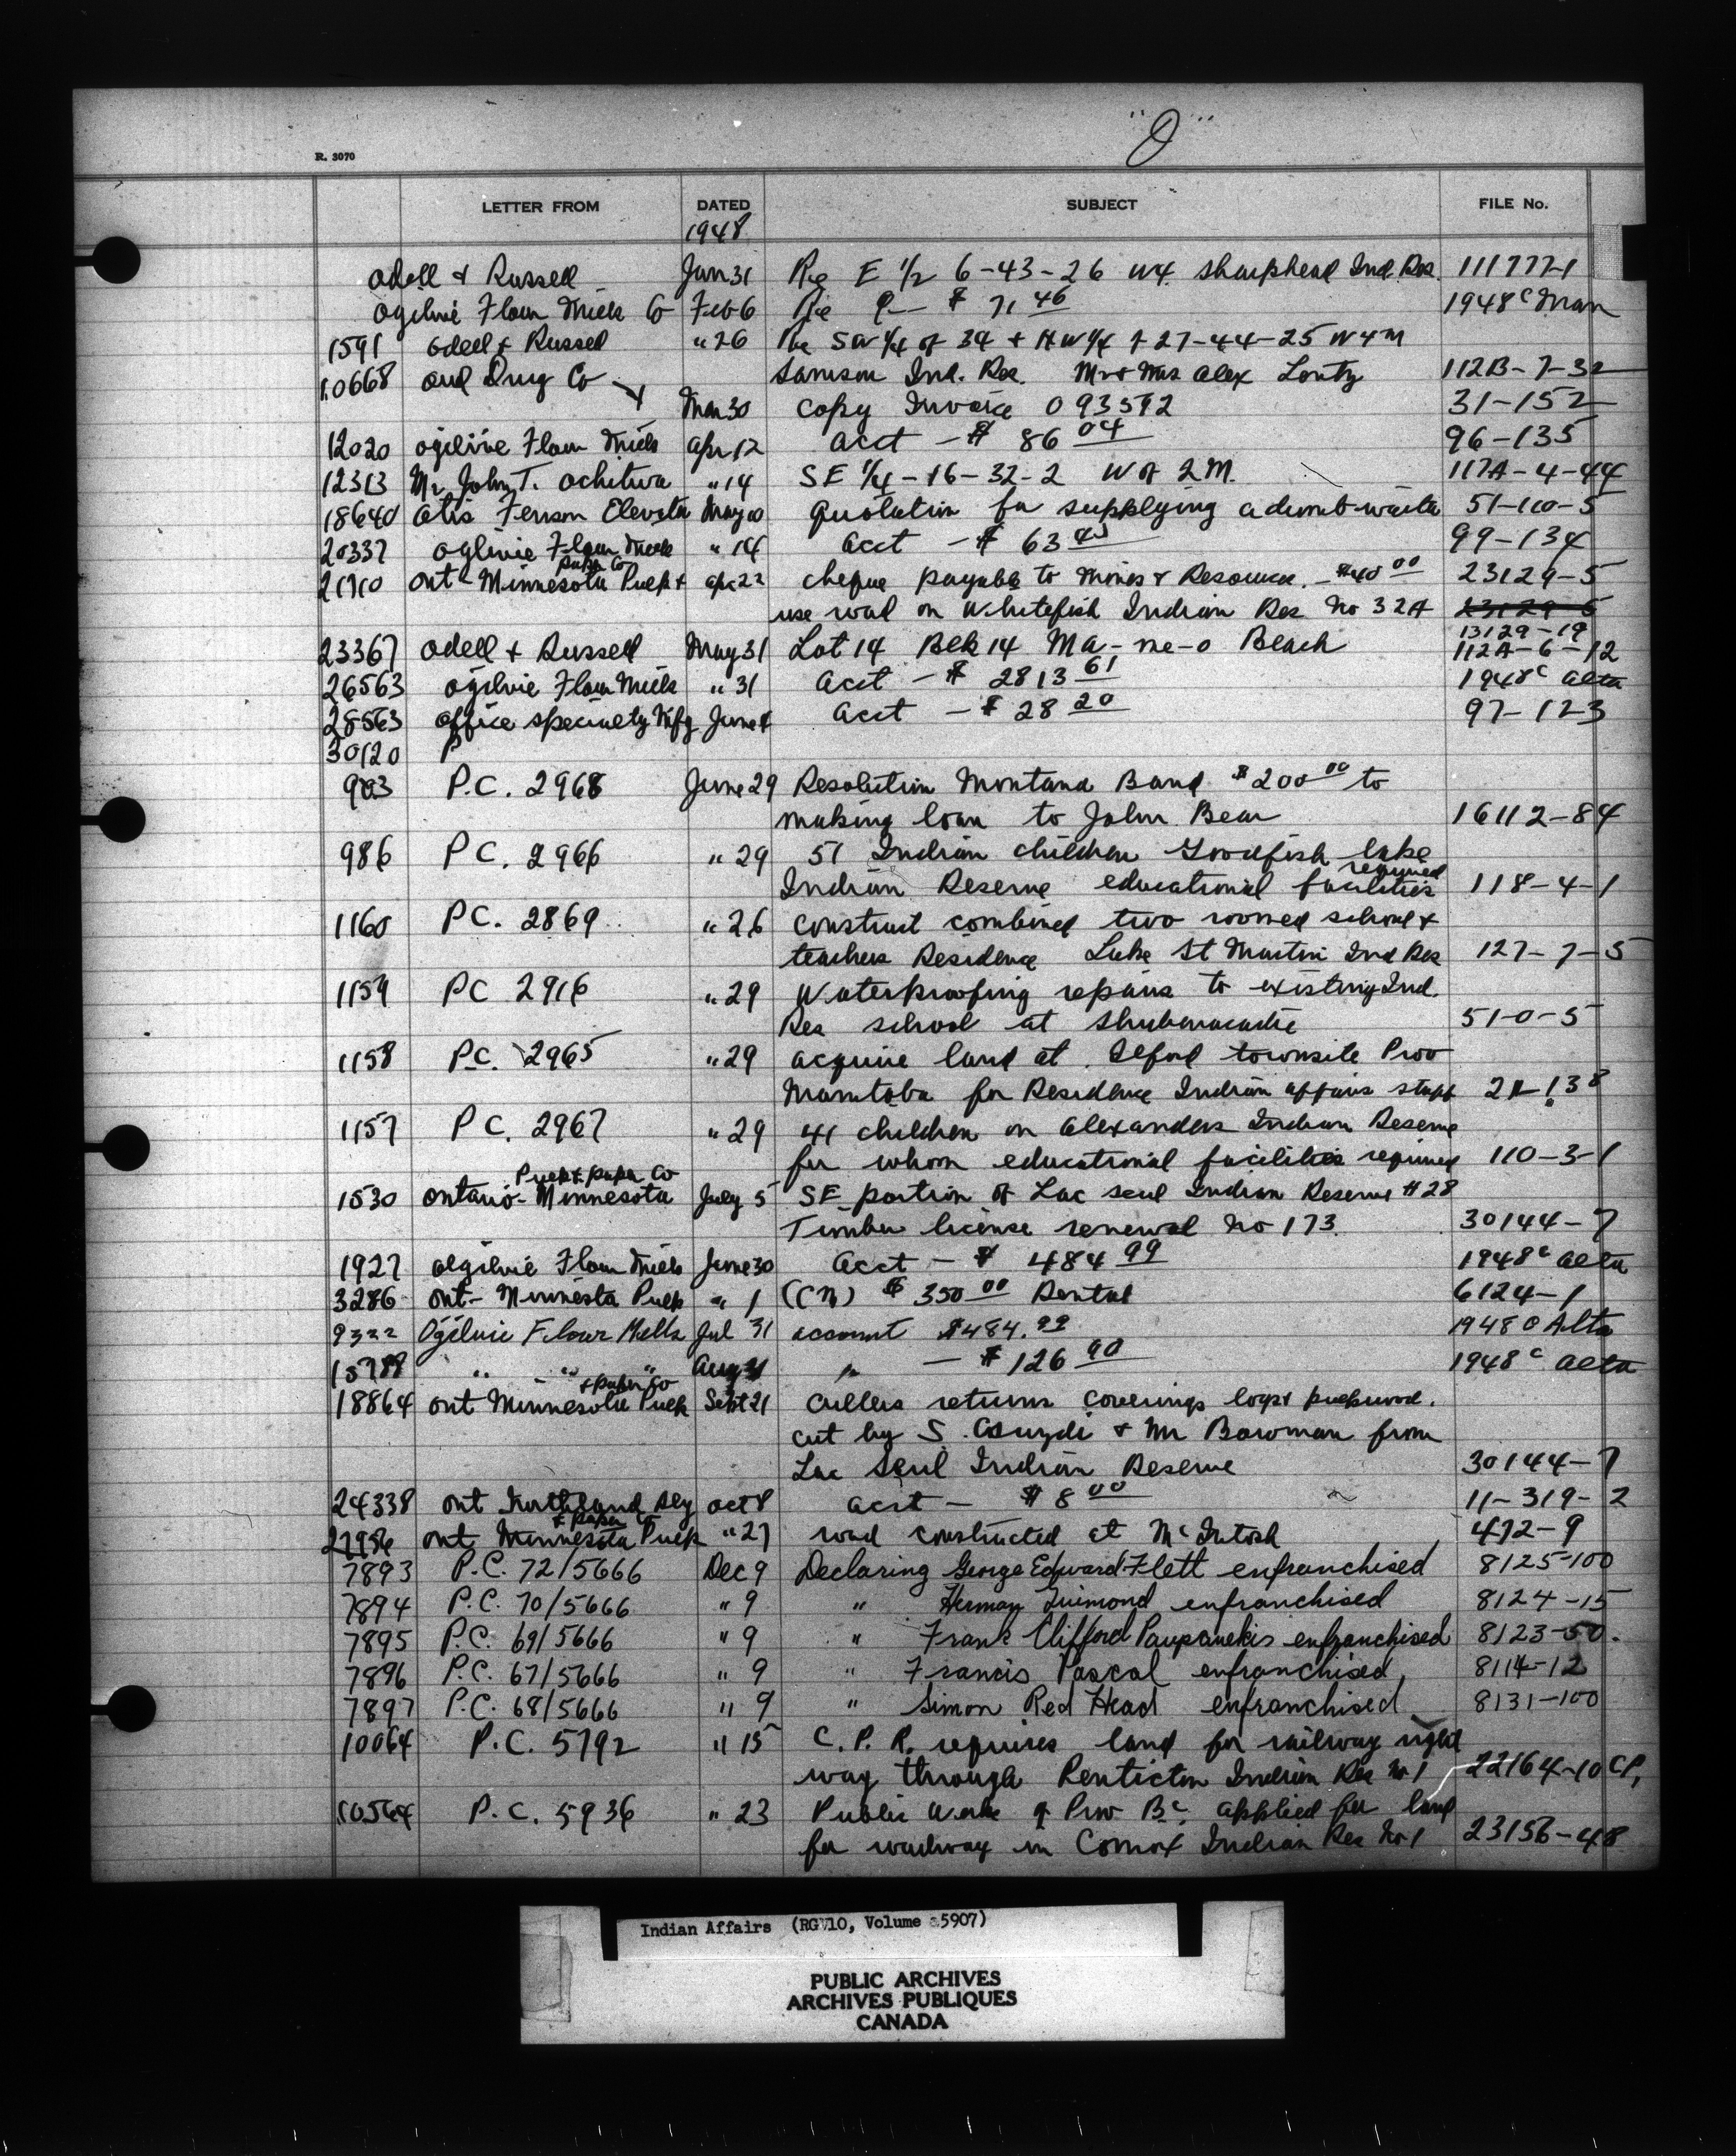 "O"
R. 3070
LETTER FROM DATED SUBJECT FILE No.
1948
Odell & Russell Jan 31 Re E 1/2 6-43-26 W4. Sharphead Ind. Res.
Ogilvie Flour Mills Co Feb 6 Re $ 71 46 1948 C Man
1591 Odell & Russel " 26 Re SW 1/4 of 34 + NW 1/4 of 27-44-25 W4M
10668 Owl Drug Co Samson Ind. Res. Mr & Mrs Alex 112B-7-32
Mar 30 Copy Invoice 093592 31-152
12020 Ogilvie Flour Mills Apr 12 Acct - $ 86 04 96-135
12313 Mr. John T. Ochitwa " 14 SE 1/4-16-32-2 W of 2M. 117A-4-44
18640 Otis Fenson Elevator May 10 Quotation for supplying a dumb-waiter 51-110-5
20337 Ogilvie Flour Mills " 14 Acct - $ 63 99-134
Paper Co
Ont-Minnesota Pulp & Apr 22 cheque payable to Mines & Resources. - $40 00 23129-5
use road on Whitefish Indian Res No 32A 23129-5
13129-19
23367 Odell & Russell May 31 Lot 14 Blk 14 Ma-me-o Beach 112A-6-12
26563 Ogilvie Flour Mills " 31 Acct - $ 2813 61 1948 C Alta
28563 Office Specialty Mfg June 4 Acct - $ 28 20 97-123
30120 P
903 P.C. 2968 June 29 Resolution Montana Band $200 00 to
making loan to John Bear 16112-84
986 P C. 2966 " 29 51 Indian children Goodfish Lake
required
Indian Reserve educational facilities 118-4-1
1160 PC. 2869 " 26 Construct combined two roomed school &
teachers Residence Lake St Martin Ind Res 127-7-5
1159 PC 2916 " 29 Waterproofing repairs to existing Ind.
Res school at Shubenacadie 51-0-5
1158 P.C. 2965 " 29 acquire land at Ilford townsite Prov
Manitoba for Residence Indian affairs staff
1157 P C. 2967 " 29 41 children on Alexanders Indian Reserve
for whom educational facilities required 110-3-1
Pulp & Paper Co
1530 Ontario-Minnesota July 5 SE portion of Lac Seul Indian Reserve #28
Timber license renewal No 173. 30144-7
1927 Ogilvie Flour Mills June 30 Acct - $ 484 99 1948 C Alta
3286 Ont-Minnesta Pulp " 1 (CN) $ 350 00 Rental 6124-1
9322 Ogilvie Flour Mills Jul 31 account $484.99 1948 C Alta
15788 " " " Aug 31 " - $ 126 90 1948 C Alta
& Paper Co
18864 Ont Minnesota Pulp Sept 21 Cullers returns coverings logs & pulpwood.
cut by S. & Mr Bowman from
Lac Seul Indian Reserve 30144-7
24338 Ont Northland Rly Oct 8 Acct - $ 8 00 11-319-2
& Paper Co
27956 Ont Minnesota Pulp " 27 road constructed at McIntosh 472-9
7893 P.C. 72/5666 Dec 9 Declaring George Edward Flett enfranchised 8125-100
7894 P.C. 70/5666 " 9 " Herman Guimond enfranchised 8124-15
7895 P.C. 69/5666 " 9 " Frank Clifford Paupanekis enfranchised 8123-50.
7896 P.C. 67/5666 " 9 " Francis Pascal enfranchised, 8114-12
7897 P.C. 68/5666 " 9 " Simon Red Head enfranchised 8131-100
10064 P.C. 5792 " 15 C. P. R. requires land for railway right
way through Penticton Indian Res No 1 22164-10 CP,
10564 P.C. 5936 " 23 Public Works of Prov B C. applied for land
for roadway in Comox Indian Res No 1 23156-48
Indian Affairs (RG 10, Volume 5907)
PUBLIC ARCHIVES
ARCHIVES PUBLIQUES
CANADA